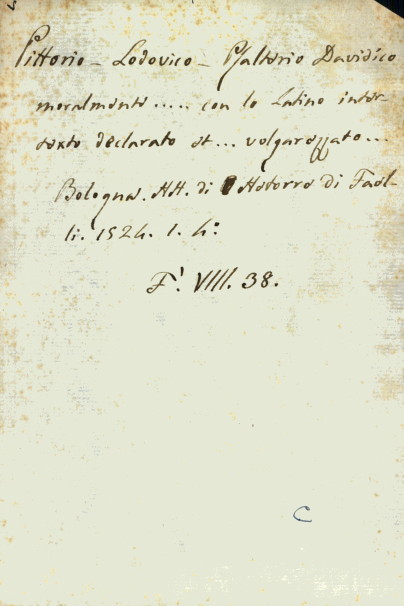 Pittorio - Lodovico - Psalterio Davidico
moralmente ..... con lo Latino inter-
texto declarato et ... volgarezzato ...
Bologna. HH. di Hetorre di Fael-
li. 1524. 1. 4º
F'. VIII. 38.
C